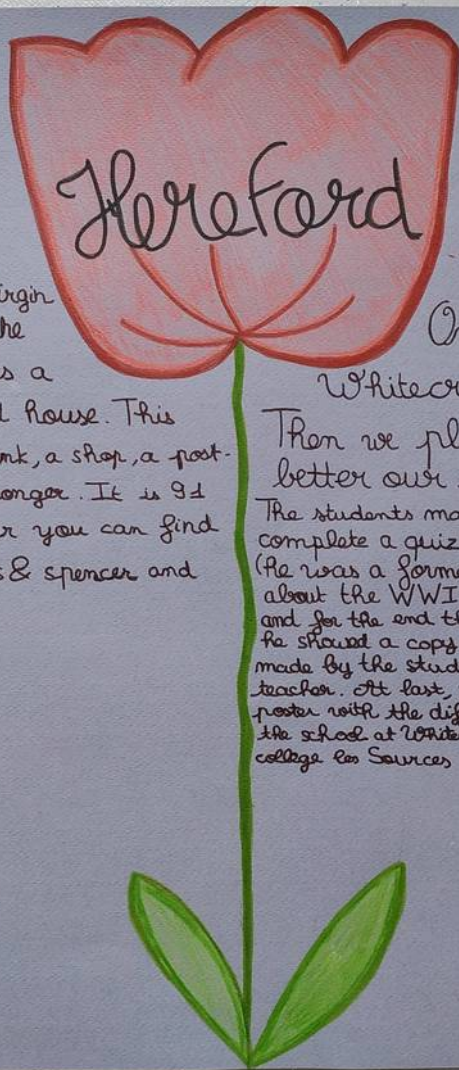 Hereford
irgin
he
s a
l house. This
nk, a shop, a post-
onger. It is 91
r you can find
s & spencer and
O
Whitecr
Then we pl
better our
The students ma
complete a quiz
(he was a forme
about the WWI
and for the end th
he showed a copy
made by the stud
teacher. At last,
poster with the dif
the school at White
college les Sources